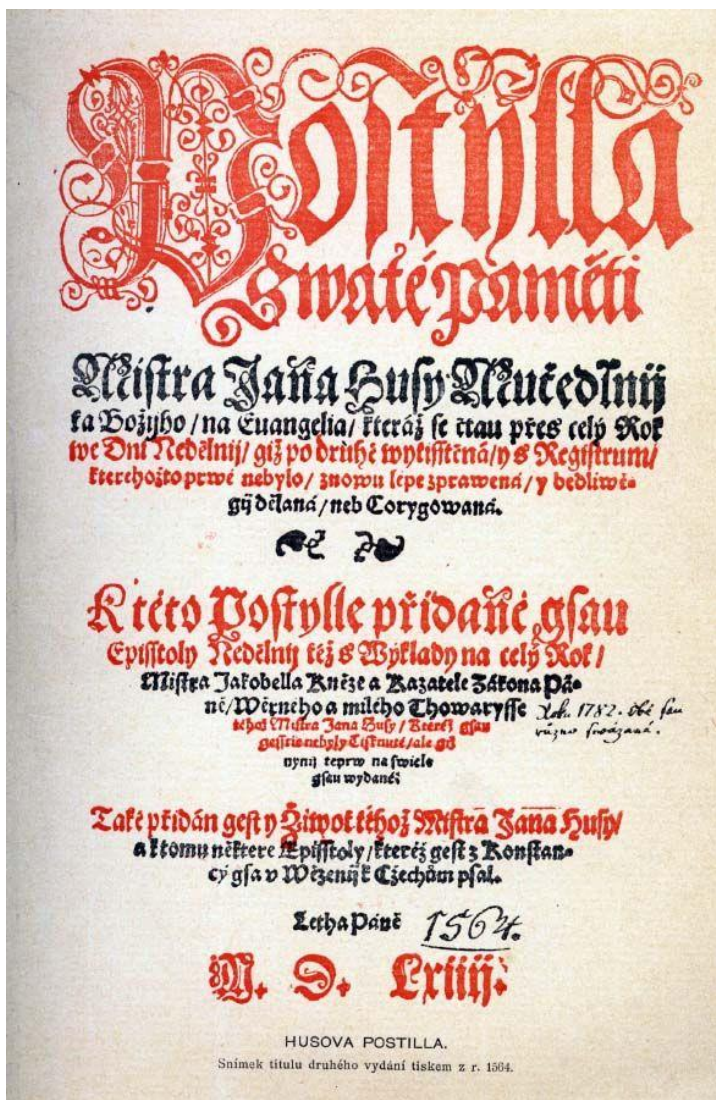 Postylla
Swaté Paměti
Mistra Jana Husy Mučedlnij
ka Božijho / na Euangelia / kteráž se čtau přes celý Rok
we Dni Nedělnij / giž po druhé wytisstěná / y s Registrum /
kterehožto prwé nebylo / znowu lépe zprawená / y bedliwě-
gij dělaná / neb Corygowaná.
K této Postylle přidané gsau
Episstoly Nedělnij též s Wýklady na celý Rok /
Mistra Jakobella Kněze a Kazatele Zákona Pá-
ně / Wěrného a milého Thowarysse
téhož Mistra Jana Husy / Kteréž gsau
gesstie nebyly Tisknuté / ale gij
nynij teprw na swietlo
gsau wydané:
Rok. 1782. obě
různo swázaná.
Také přidán gest y Žiwot téhož Mistra Jana Husy /
a k tomu některe Episstoly / kteréž gest z Konstan-
cý gsa v Wězenij k Cžechům psal.
Letha Páně 1564.
M. D. Lxiiij.
HUSOVA POSTILLA.
Snímek titulu druhého vydání tiskem z r. 1564.